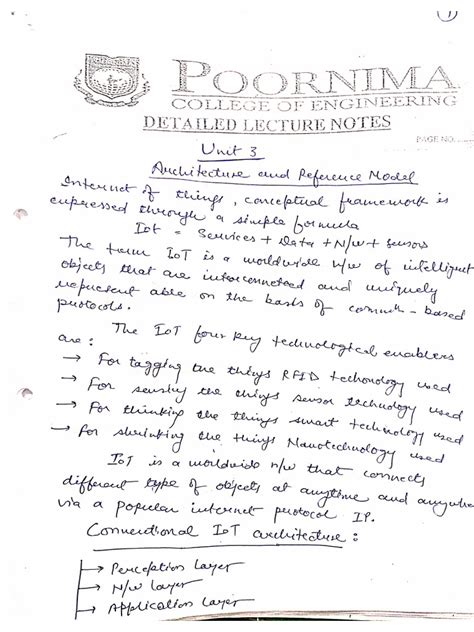 1
POORNIMA
COLLEGE OF ENGINEERING
DETAILED LECTURE NOTES
PAGE NO.
Unit 3
Architecture and Reference Model
Internet of things, conceptual framework is
expressed through a simple formula
IoT = Services + Data + N/w + Sensors
The term IoT is a worldwide n/w of intelligent
objects that are interconnected and uniquely
represent able on the basis of commn - based
protocols.
The IoT four key technological enablers
are :
→ For tagging the things RFID technology used
→ For sensing the things sensor technology used
→ For thinking the things smart technology used
→ For shrinking the things Nanotechnology used
IoT is a worldwide n/w that connects
different type of objects at anytime and anywhere
via a popular internet protocol IP.
Conventional IoT architecture :
→ Perception Layer
→ N/w Layer
→ Application Layer